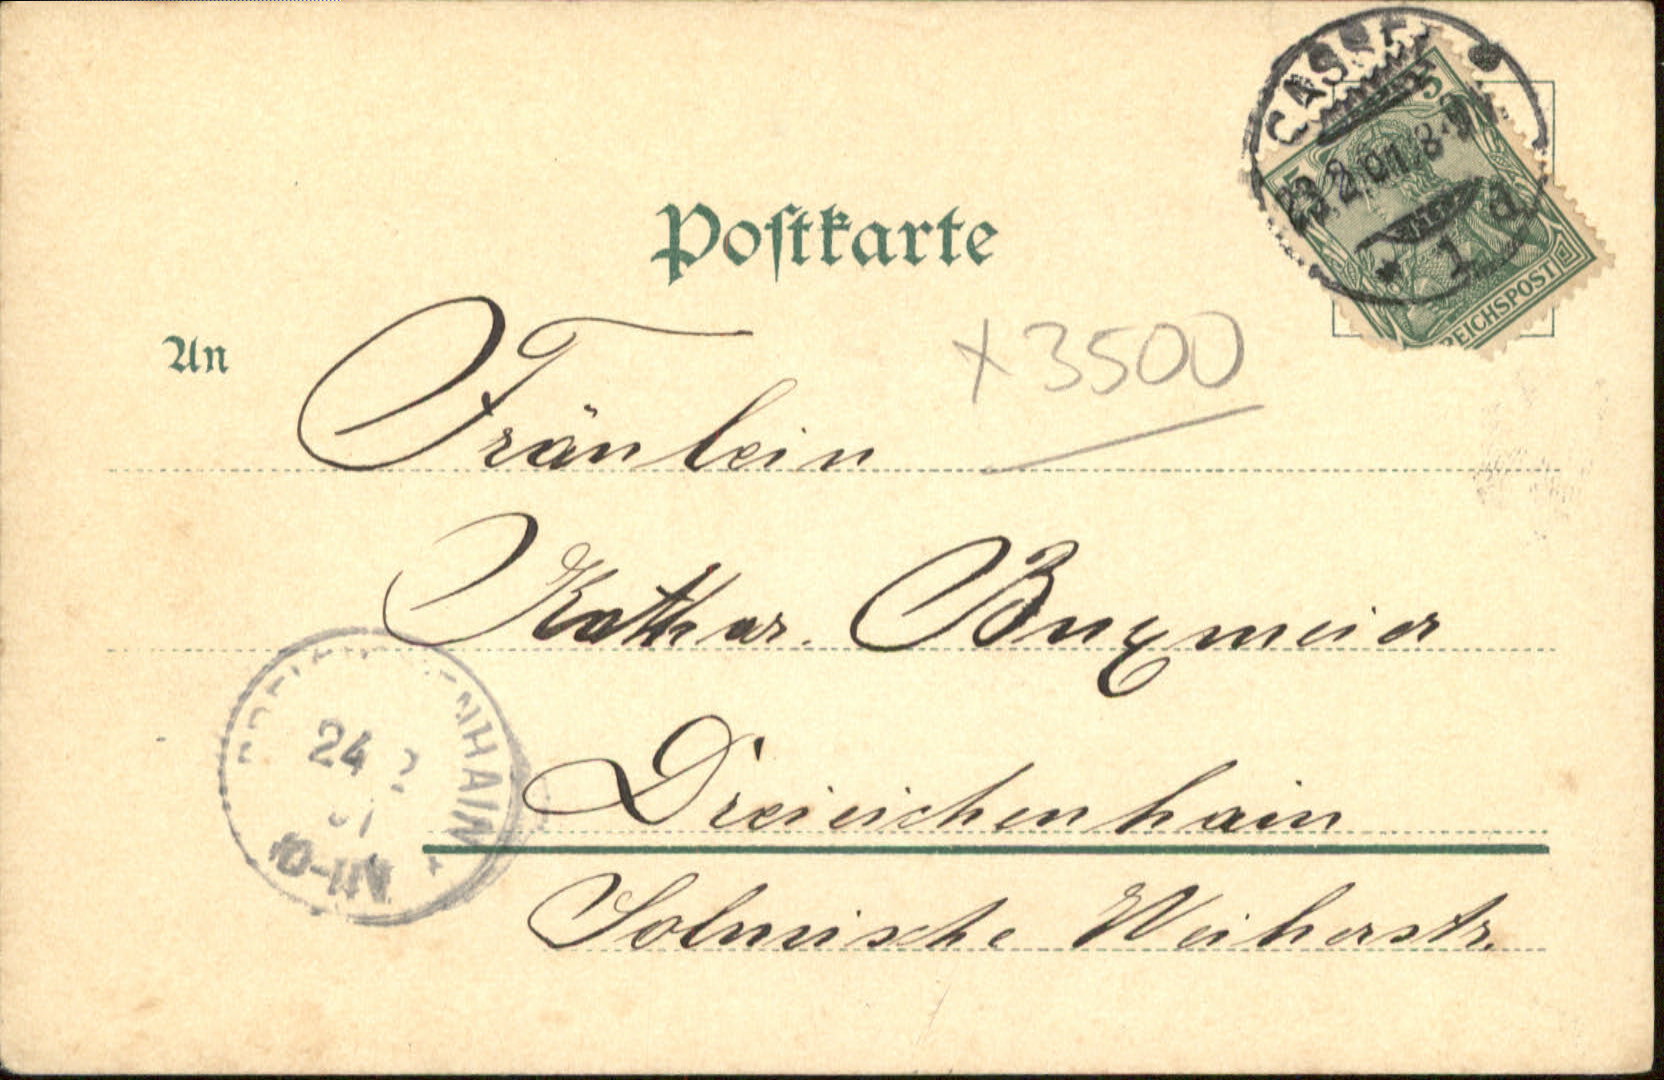 Postkarte
CASSEL
23.2.01.8-9
* 1 d
5
5
REICHSPOST
An
Fräulein
× 3500
Kathar. Bungmeier
Dreieichenhain
Solmische Weiherstr.
24 2
01
10-11N